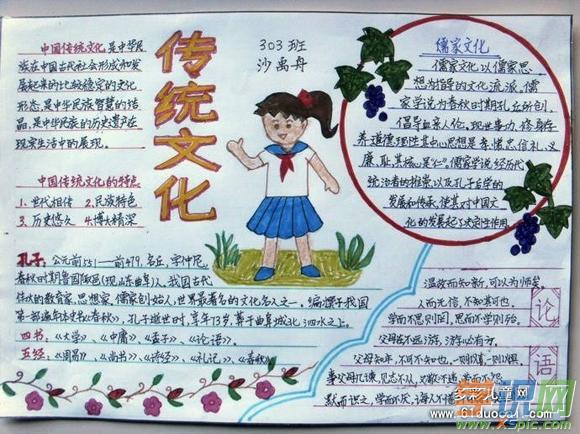 中国传统文化是中华民
族在中国古代社会形成和发
展起来的比较稳定的文化
形态,是中华民族智慧的结
晶,是中华民族的历史遗产在
现实生活中的展现。
中国传统文化的特点
1、世代相传 2、民族特色
3、历史悠久 4、博大精深
传统文化
303班
沙禹舟
儒家文化
儒家文化以儒家思
想为指导的文化流派,儒
家学说为春秋时期孔丘所创,
倡导血亲人伦,现世事功,修身存
养,道德理性其中心思想是孝悌忠信礼义
廉耻,其核心是"仁"。儒家学说经历代
统治者的推崇,以及孔子后学的
发展和传承,使其对中国文
化的发展起了决定性作用
孔子:公元前551—前479,名丘,字仲尼,
春秋时期鲁国陬邑(现山东曲阜)人,我国古代
伟大的教育家、思想家,儒家创始人,世界最著名的文化名人之一。编撰了我国
第一部编年体史书《春秋》,孔子逝世时,享年73岁,葬于曲阜城北泗水之上。
四书:《大学》、《中庸》、《孟子》、《论语》。
五经:《周易》、《尚书》、《诗经》、《礼记》、《春秋》
论语
温故而知新,可以为师矣。
人而无信,不知其可也。
学而不思则罔,思而不学则殆。
父母在不远游,游必有方。
父母之年,不可不知也,一则以喜,一则以惧
事父母几谏,见志不从,又敬不违,劳而不怨。
默而识之,学而不厌,诲人不倦
多彩儿童网
www.61duocai.com
学识网
www.xspic.com